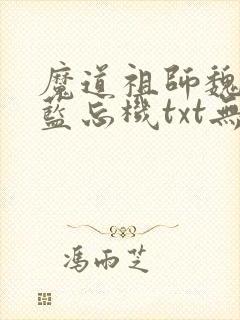 魔道祖師魏
藍忘機txt無
馮雨芝